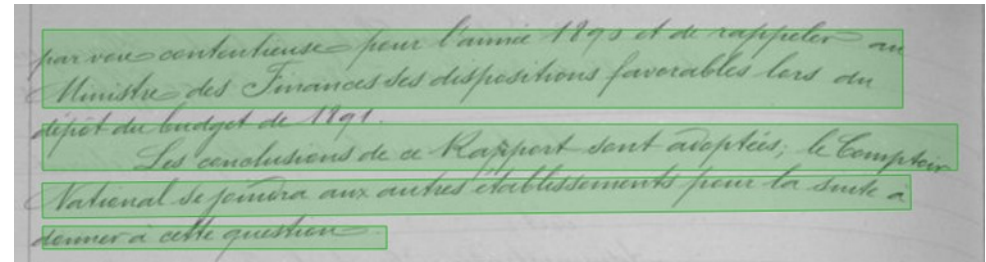 par voie contentieuse pour l'année 1890 et de rappeler au
Ministre des Finances ses dispositions favorables lors du
dépôt du budget de 1891.
Les conclusions de ce Rapport sont adoptées; le Comptoir
National se joindra aux autres établissements pour la suite à
donner à cette question